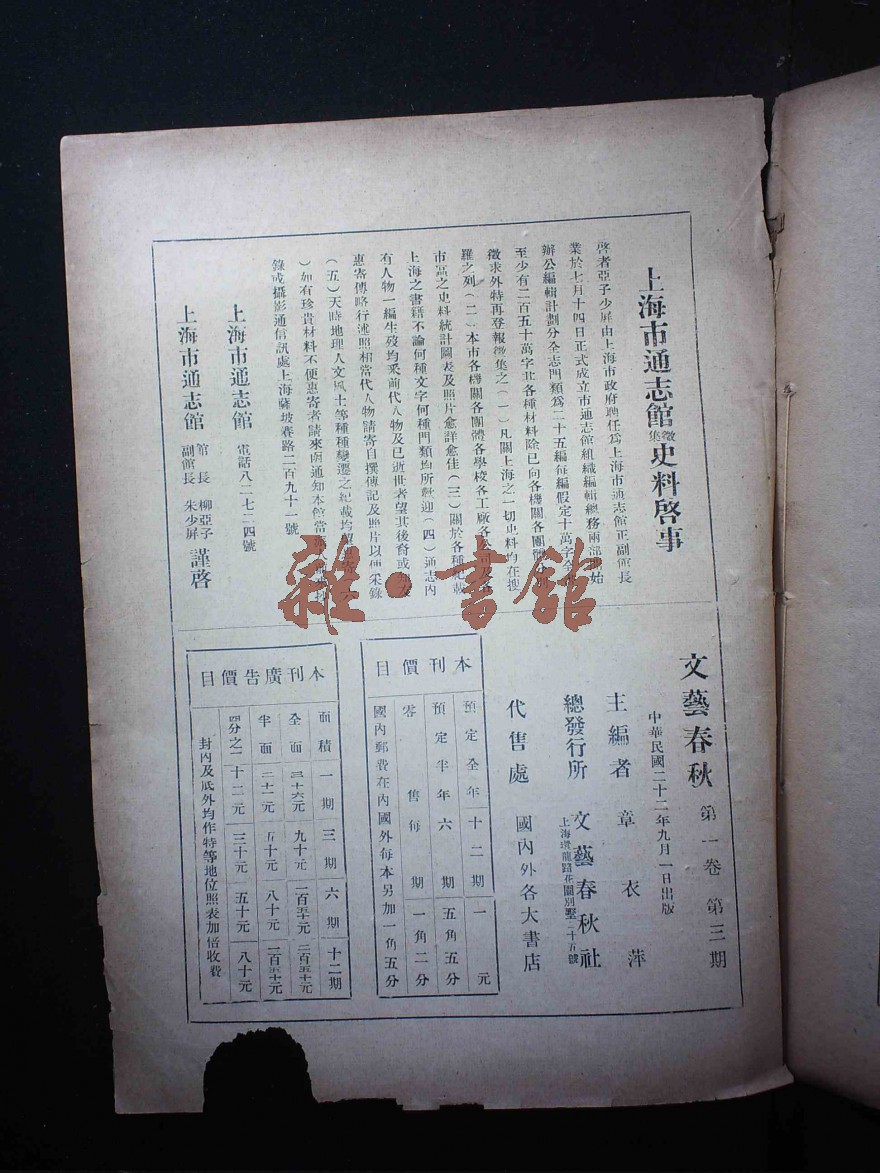 上海市通志館徵集史料啓事
啓者亞子少屏由上海市政府聘任爲上海市通志館正副館長
業於七月十四日正式成立市通志館組織編輯總務兩部開始
辦公編輯計劃分全志門類爲二十五編每編假定十萬字全
至少有二百五十萬字北各種材料除已向各機關各團體
徵求外特再登報徵集之（一）凡關上海之一切史料均在搜
羅之列（二）本市各機關各團體各學校各工廠各公司及
市區之史料統計圖表及照片愈詳愈佳（三）關於各種紀載
上海之書籍不論何種文字何種門類均所歡迎（四）通志內
有人物一編生歿均釆前代人物及已逝世者望其後裔或
惠寄傳略行述照相當代人物請寄自撰傳記及照片以便采錄
（五）天時地理人文風土等種種變遷之紀載均
）如有珍貴材料不便惠寄者請來函通知本館當
錄或攝影通信訊處上海薩坡賽路二百九十一號
上海市通志館 電話八二七二四號
上海市通志館 館長 柳亞子 副館長 朱少屏 謹啓
文藝春秋 第一卷 第三期
中華民國二十二年九月一日出版
主編者 章衣萍
總發行所 文藝春秋社
上海環龍路花園別墅二十五號
代售處 國內外各大書店
本刊價目
預定全年十二期一元
預定半年六期五角五分
零售每期一角二分
國內郵費在內國外每本另加一角五分
本刊廣告價目
面積 一期 三期 六期 十二期
全面 三十六元 九十元 一百五十元 二百五十元
半面 二十一元 五十元 八十元 一百五十元
四分之一 十二元 三十元 五十元 八十元
封內及底外均作特等地位照表加倍收費
雜·書館